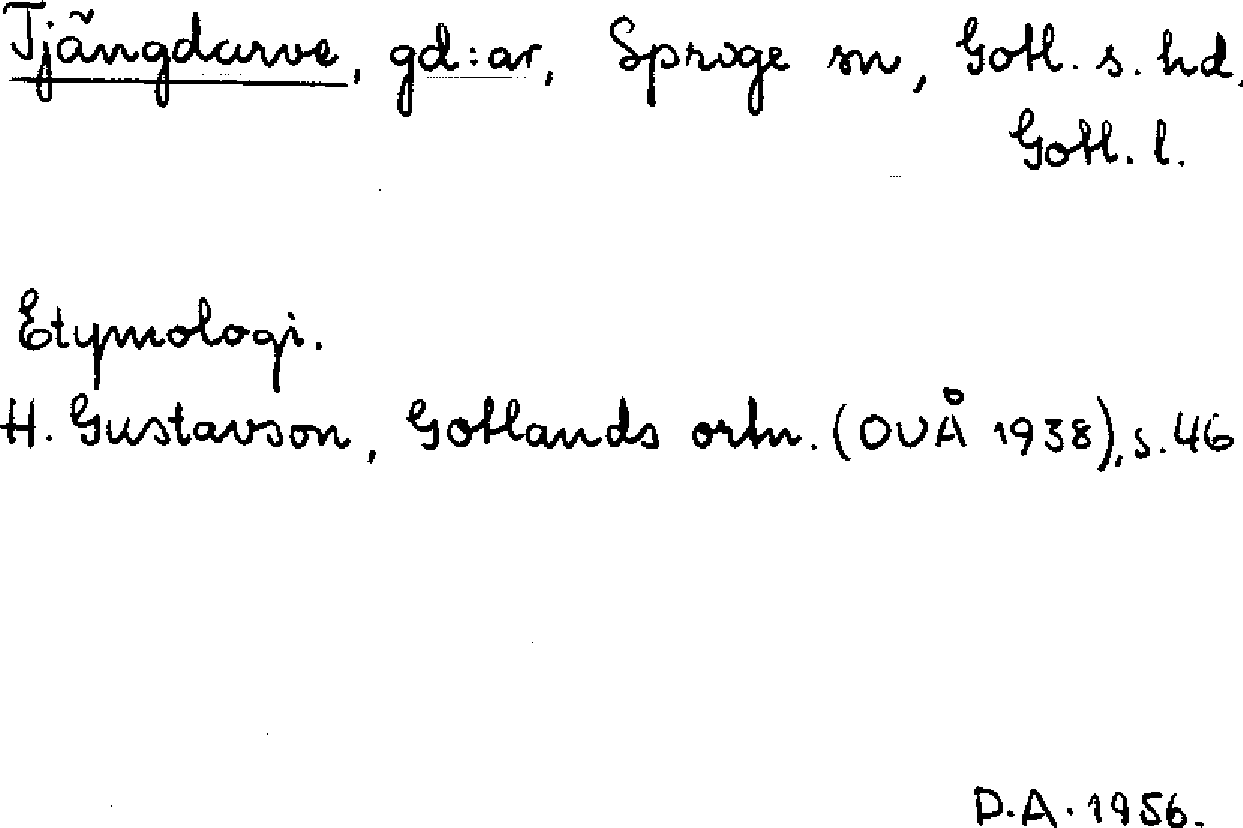 Tjängdarve, gd:ar, Sproge sn, Gotl. s. hd.
Gotl. l.
Etymologi.
H. Gustavson, Gotlands ortn. (OUÅ 1938), s. 46
D.A. 1956.